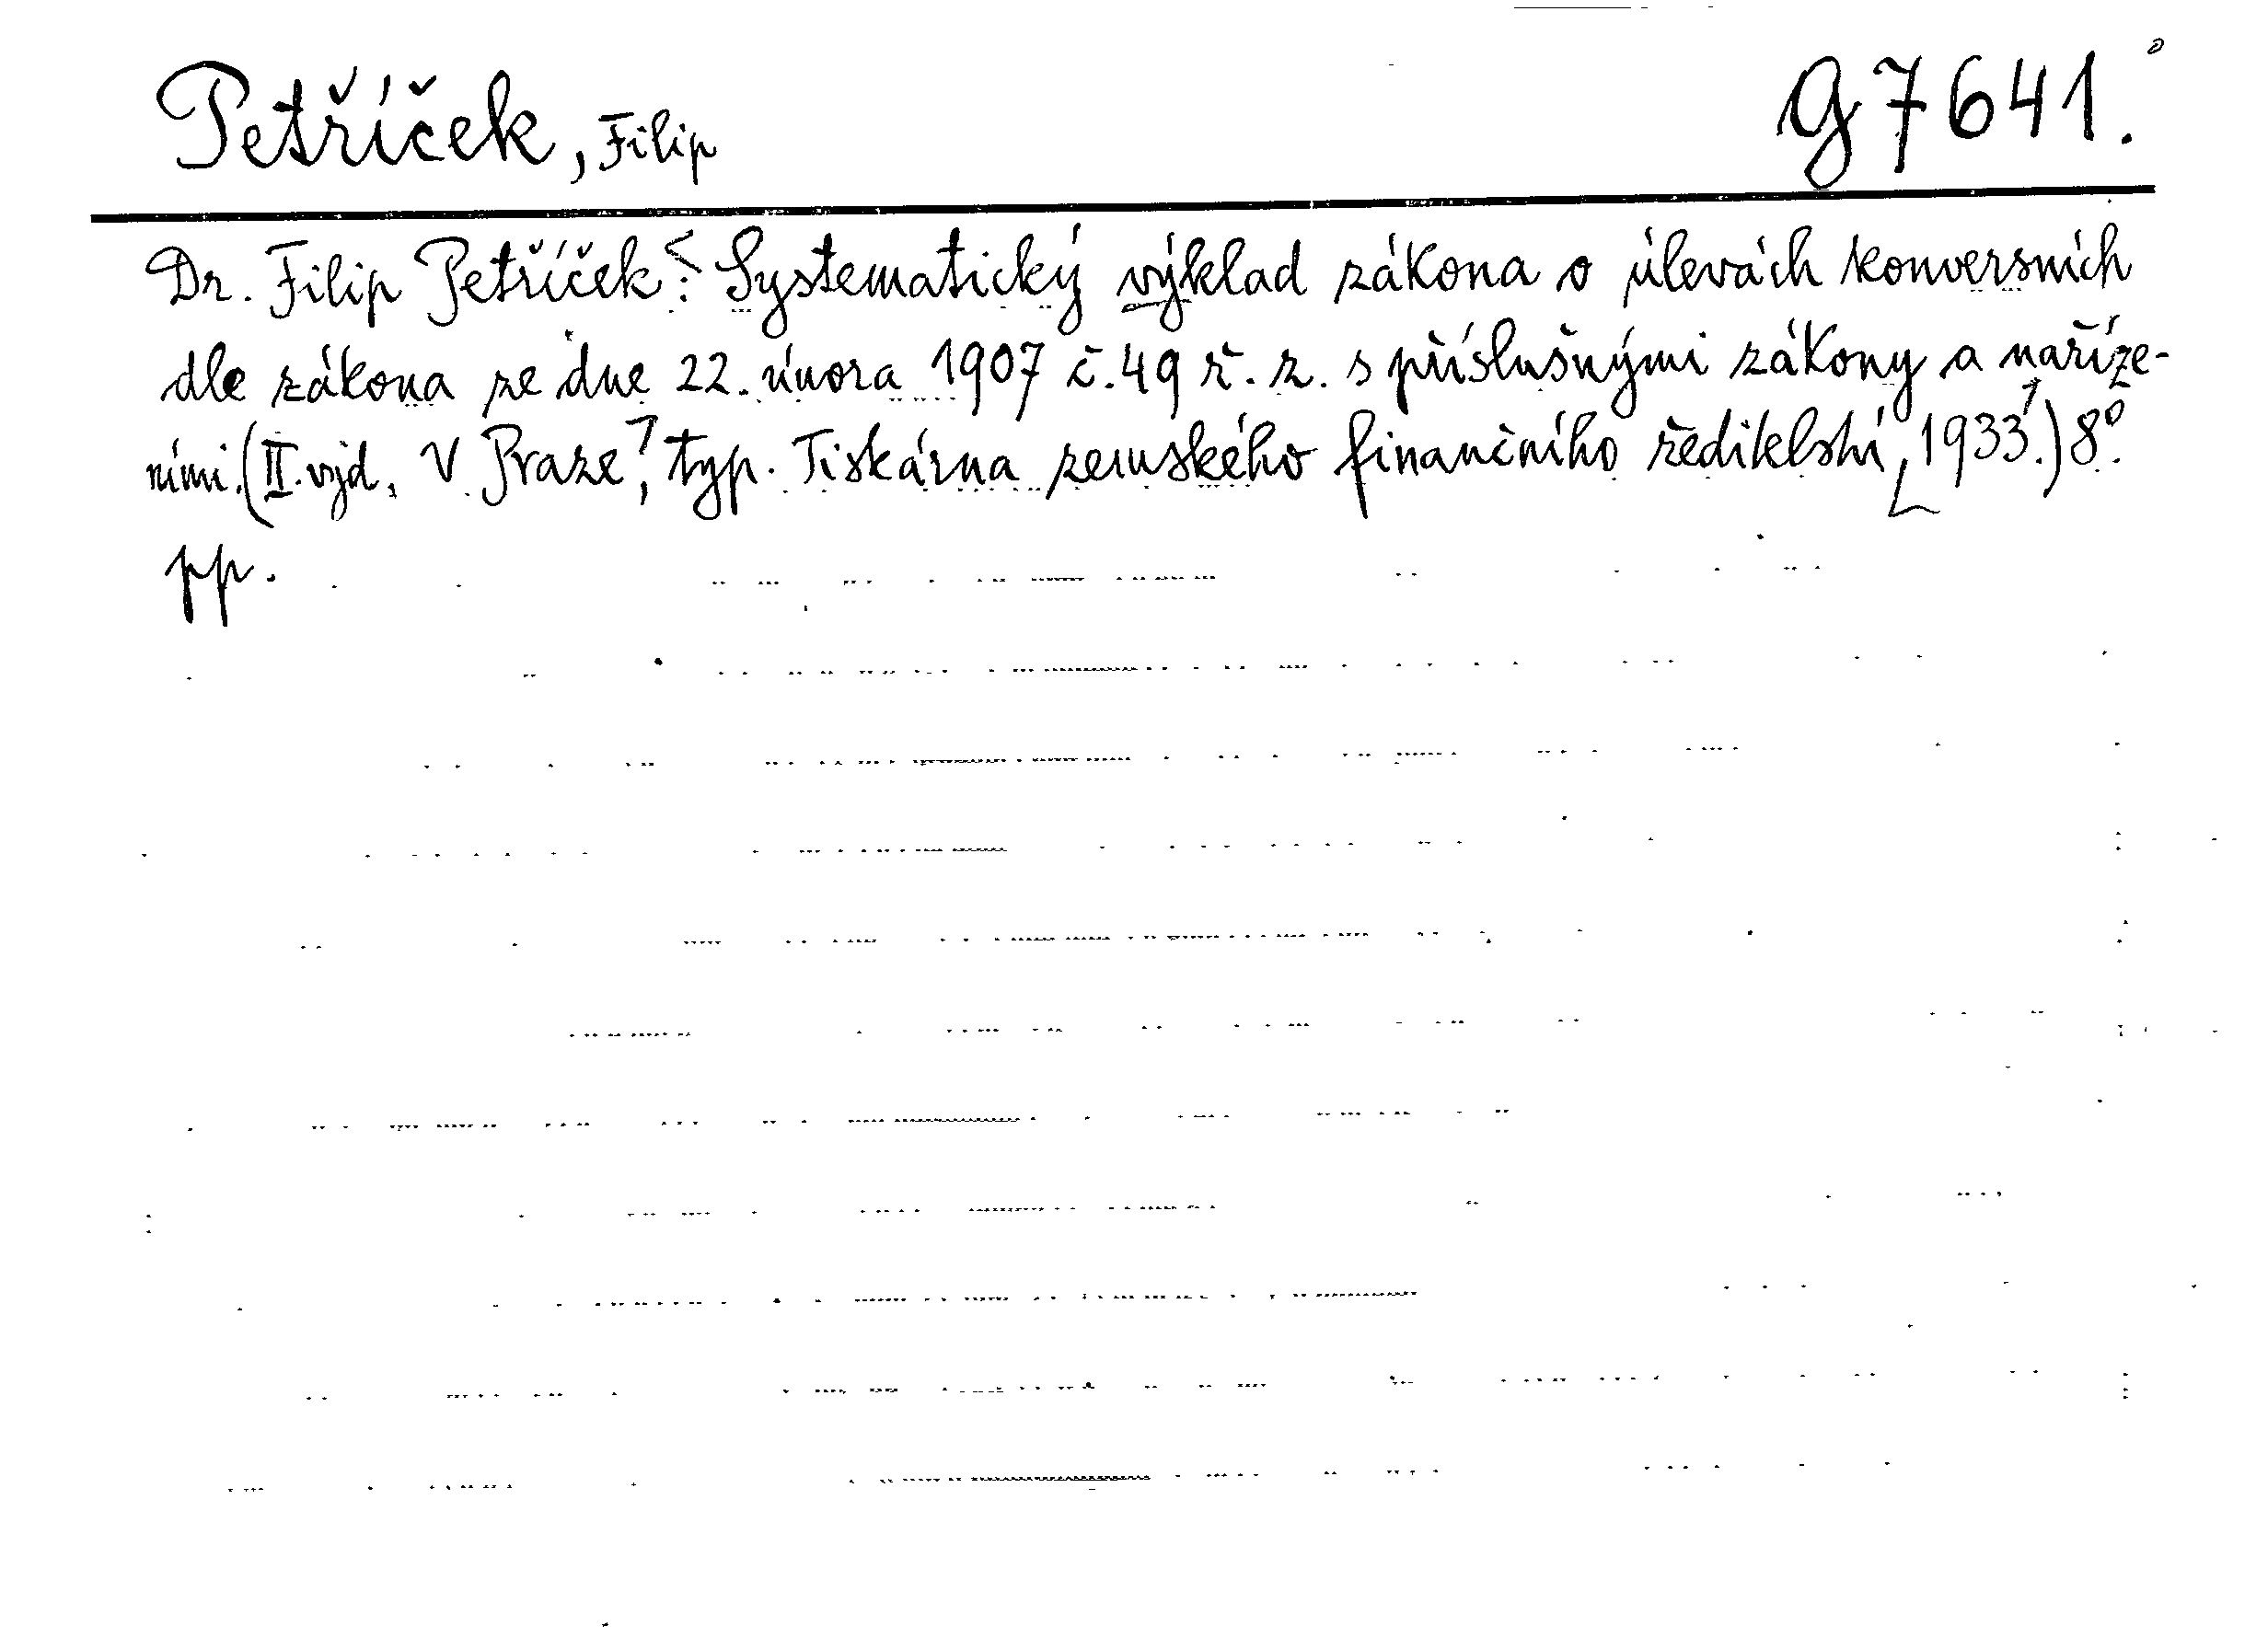 Petříček, Filip
G 7641.
Dr. Filip Petříček: Systematický výklad zákona o úlevách konversních
dle zákona ze dne 22. února 1907 č. 49 ř. z. s příslušnými zákony a naříze-
ními. (II. vyd. V Praze, typ. Tiskárna zemského finančního ředitelství, 1933.) 8°.
pp.